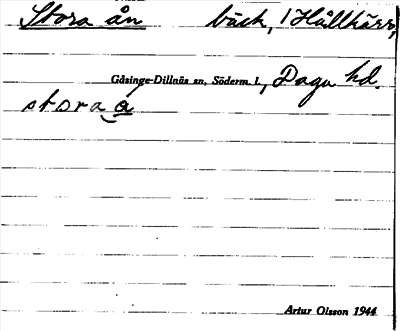 Stora ån bäck, 1 Hållkärr,
Gåsinge-Dillnäs sn, Söderm. l., Daga hd.
stora å
Artur Olsson 1944